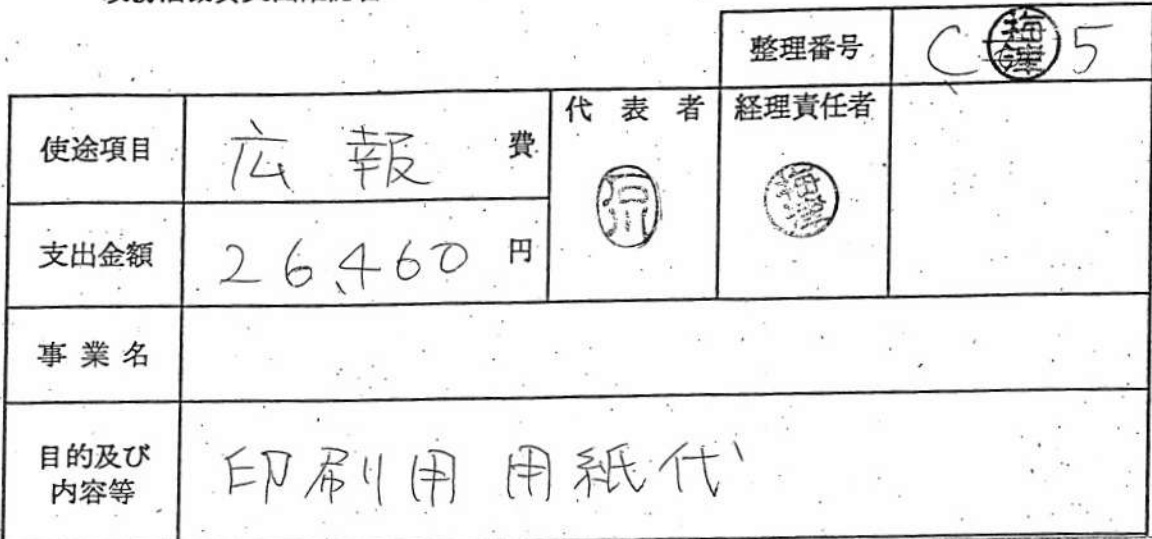 整理番号 C 5
使途項目 広報 費
代表者 経理責任者
支出金額 26,460 円
事業名
目的及び
内容等
印刷用 用紙代